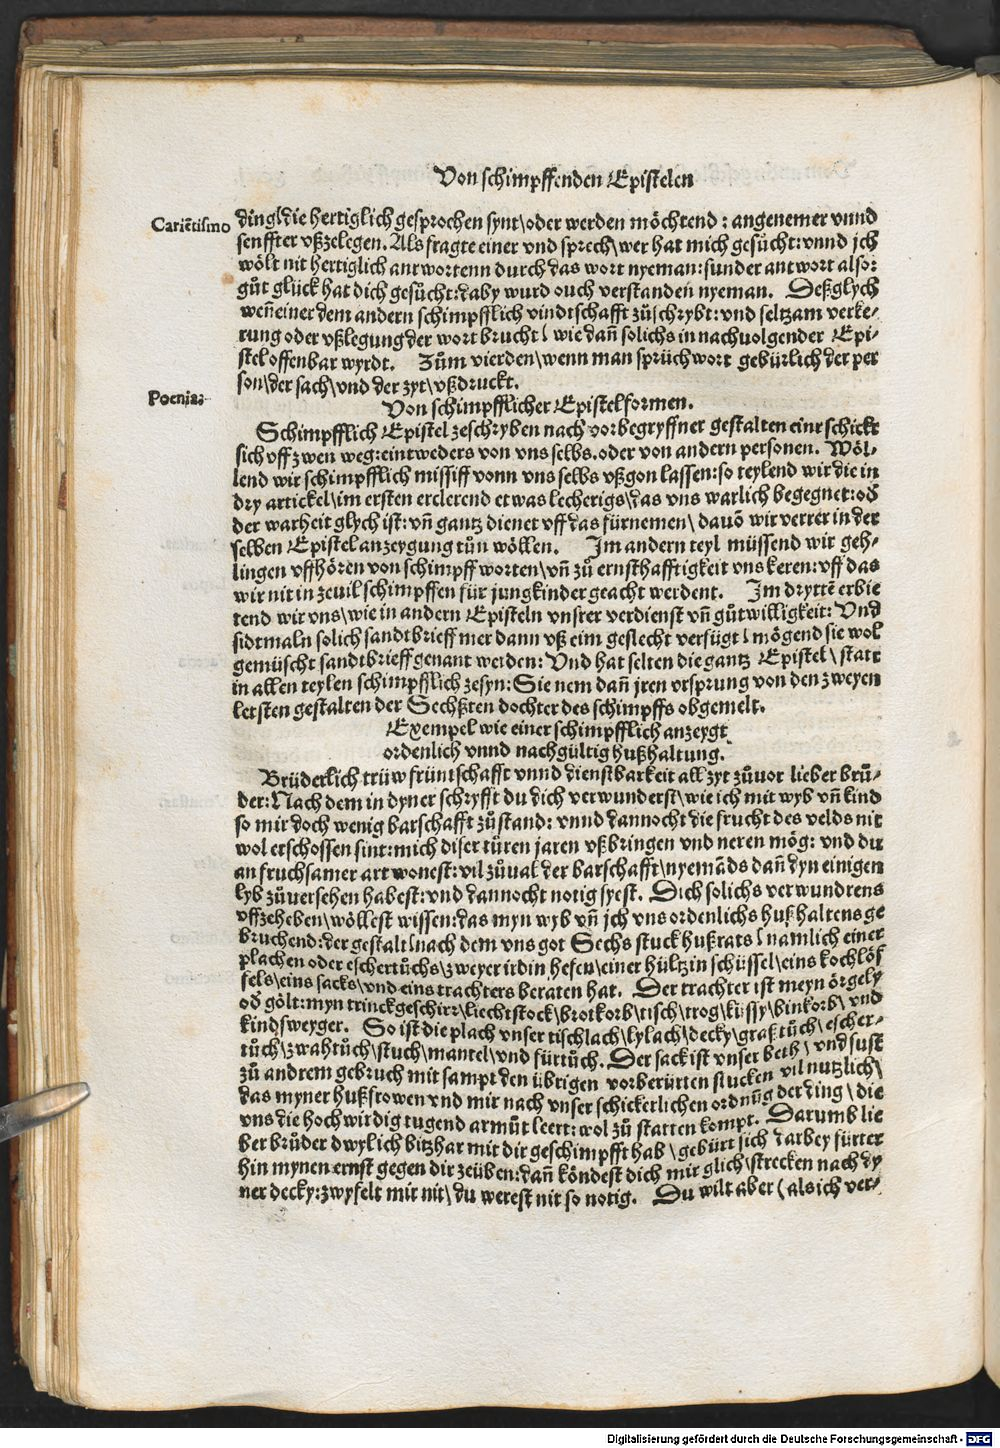 Von schimpffenden Epistelen
Cariētismo
ding\die hertiglich gesprochen synt\oder werden möchtend: angenemer vnnd
senffter vßzelegen. Als fragte einer vnd sprech\wer hat mich gesůcht: vnnd jch
wölt nit hertiglich antwortenn durch das wort nyeman: sunder antwort also:
gůt glück hat dich gesůcht: daby wurd ouch verstanden nyeman. Deßglych
weñ einer dem andern schimpfflich vindtschafft zůschrybt: vnd seltzam verke-
rung oder vßlegung der wort brucht\ wie dañ solichs in nachuolgender Epi-
stel offenbar wyrdt. Zům vierden\wenn man sprüchwort gebürlich der per
Poenia:
son\der sach\vnd der zyt\vßdruckt.
Von schimpfflicher Epistel formen.
Schimpfflich Epistel zeschryben nach vorbegryffner gestalten einr schickt
sich vff zwen weg: eintweders von vns selbs. oder von andern personen. Wöl-
lend wir schimpfflich missiff vonn vns selbs vßgon lassen: so teylend wir die in
dry artickel\im ersten erclerend etwas lecherigs\das vns warlich begegnet: od̄
der warheit glych ist: vñ gantz dienet vff das fürnemen\ dauō wir verrer in der
selben Epistel anzeygung tůn wöllen. Im andern teyl müssend wir geh-
lingen vffhören von schimpff worten\vñ zů ernsthafftigkeit vns keren: vff das
wir nit in zeuil schimpffen für jungkinder geacht werdent. Im dryttē erbie
tend wir vns\wie in andern Episteln vnsrer verdienst vñ gůtwilligkeit: Vnd
sidtmaln solich sandtbrieff mer dann vß eim geslecht verfügt\ mögend sie wol
gemüscht sandtbrieff genant werden: Vnd hat selten die gantz Epistel\ statt
in allen teylen schimpfflich zesyn: Sie nem dañ jren vrsprung von den zweyen
letsten gestalten der Sechßten dochter des schimpffs obgemelt.
Exempel wie einer schimpfflich anzeygt
ordenlich vnnd nachgültig hußhaltung.
Brüderlich trüw früntschafft vnnd dienstbarkeit all zyt zůuor lieber brů-
der: Nach dem in dyner schryfft du dich verwunderst\wie ich mit wyb vñ kind
so mir doch wenig barschafft zůstand: vnnd dannocht die frucht des velds nit
wol erschossen sint: mich diser türen jaren vßbringen vnd neren mög: vnd du
an fruchsamer art wonest: vil zůual der barschafft\nyemāds dañ dyn einigen
lyb zůuersehen habest: vnd dannocht notig syest. Dich solichs verwundrens
vffzeheben\wöllest wissen: das myn wyb vñ jch vns ordenlichs hußhaltens ge
bruchend: der gestalt\nach dem vns got Sechs stuck hußrats\ namlich einer
plachen oder eschertůchs\zweyer irdin hefen\einer hültzin schüssel\eins kochlöf
fels\eins sacks\vnd eins trachters beraten hat. Der trachter ist meyn örgely
od̄ gölt: myn trinckgeschirr\liechtstock\brotkorb\tisch\trog\küssy\binkorb\ vnd
kindsweyger. So ist die plach vnser tischlach\lylach\decky\graßtůch\escher-
tůch\zwahtůch\stuch\mantel\vnd fürtůch. Der sack ist vnser beth\ vnd sust
zů andrem gebruch mit sampt den übrigen vorberürten stucken vil nutzlich\
das myner hußfrowen vnd mir nach vnser schickerlichen ordnūg der ding\ die
vns die hochwirdig tugend armůt leert: wol zů statten kompt. Darumb lie
ber brůder dwylich bitzhar mit dir geschimpfft hab\ gebürt sich darbey fürter
hin mynen ernst gegen dir zeüben: dañ köndest dich mir glich\strecken nach dy
ner decky: zwyfelt mir nit\ du werest nit so notig. Du wilt aber (als ich ver-
Digitalisierung gefördert durch die Deutsche Forschungsgemeinschaft - DFG